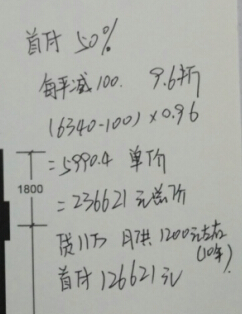 首付 50%
每平减100. 9.6折
(6340-100)×0.96
=5990.4 单价
=236621元总价
贷11万 月供1200元左右
(10年)
首付126621元
1800